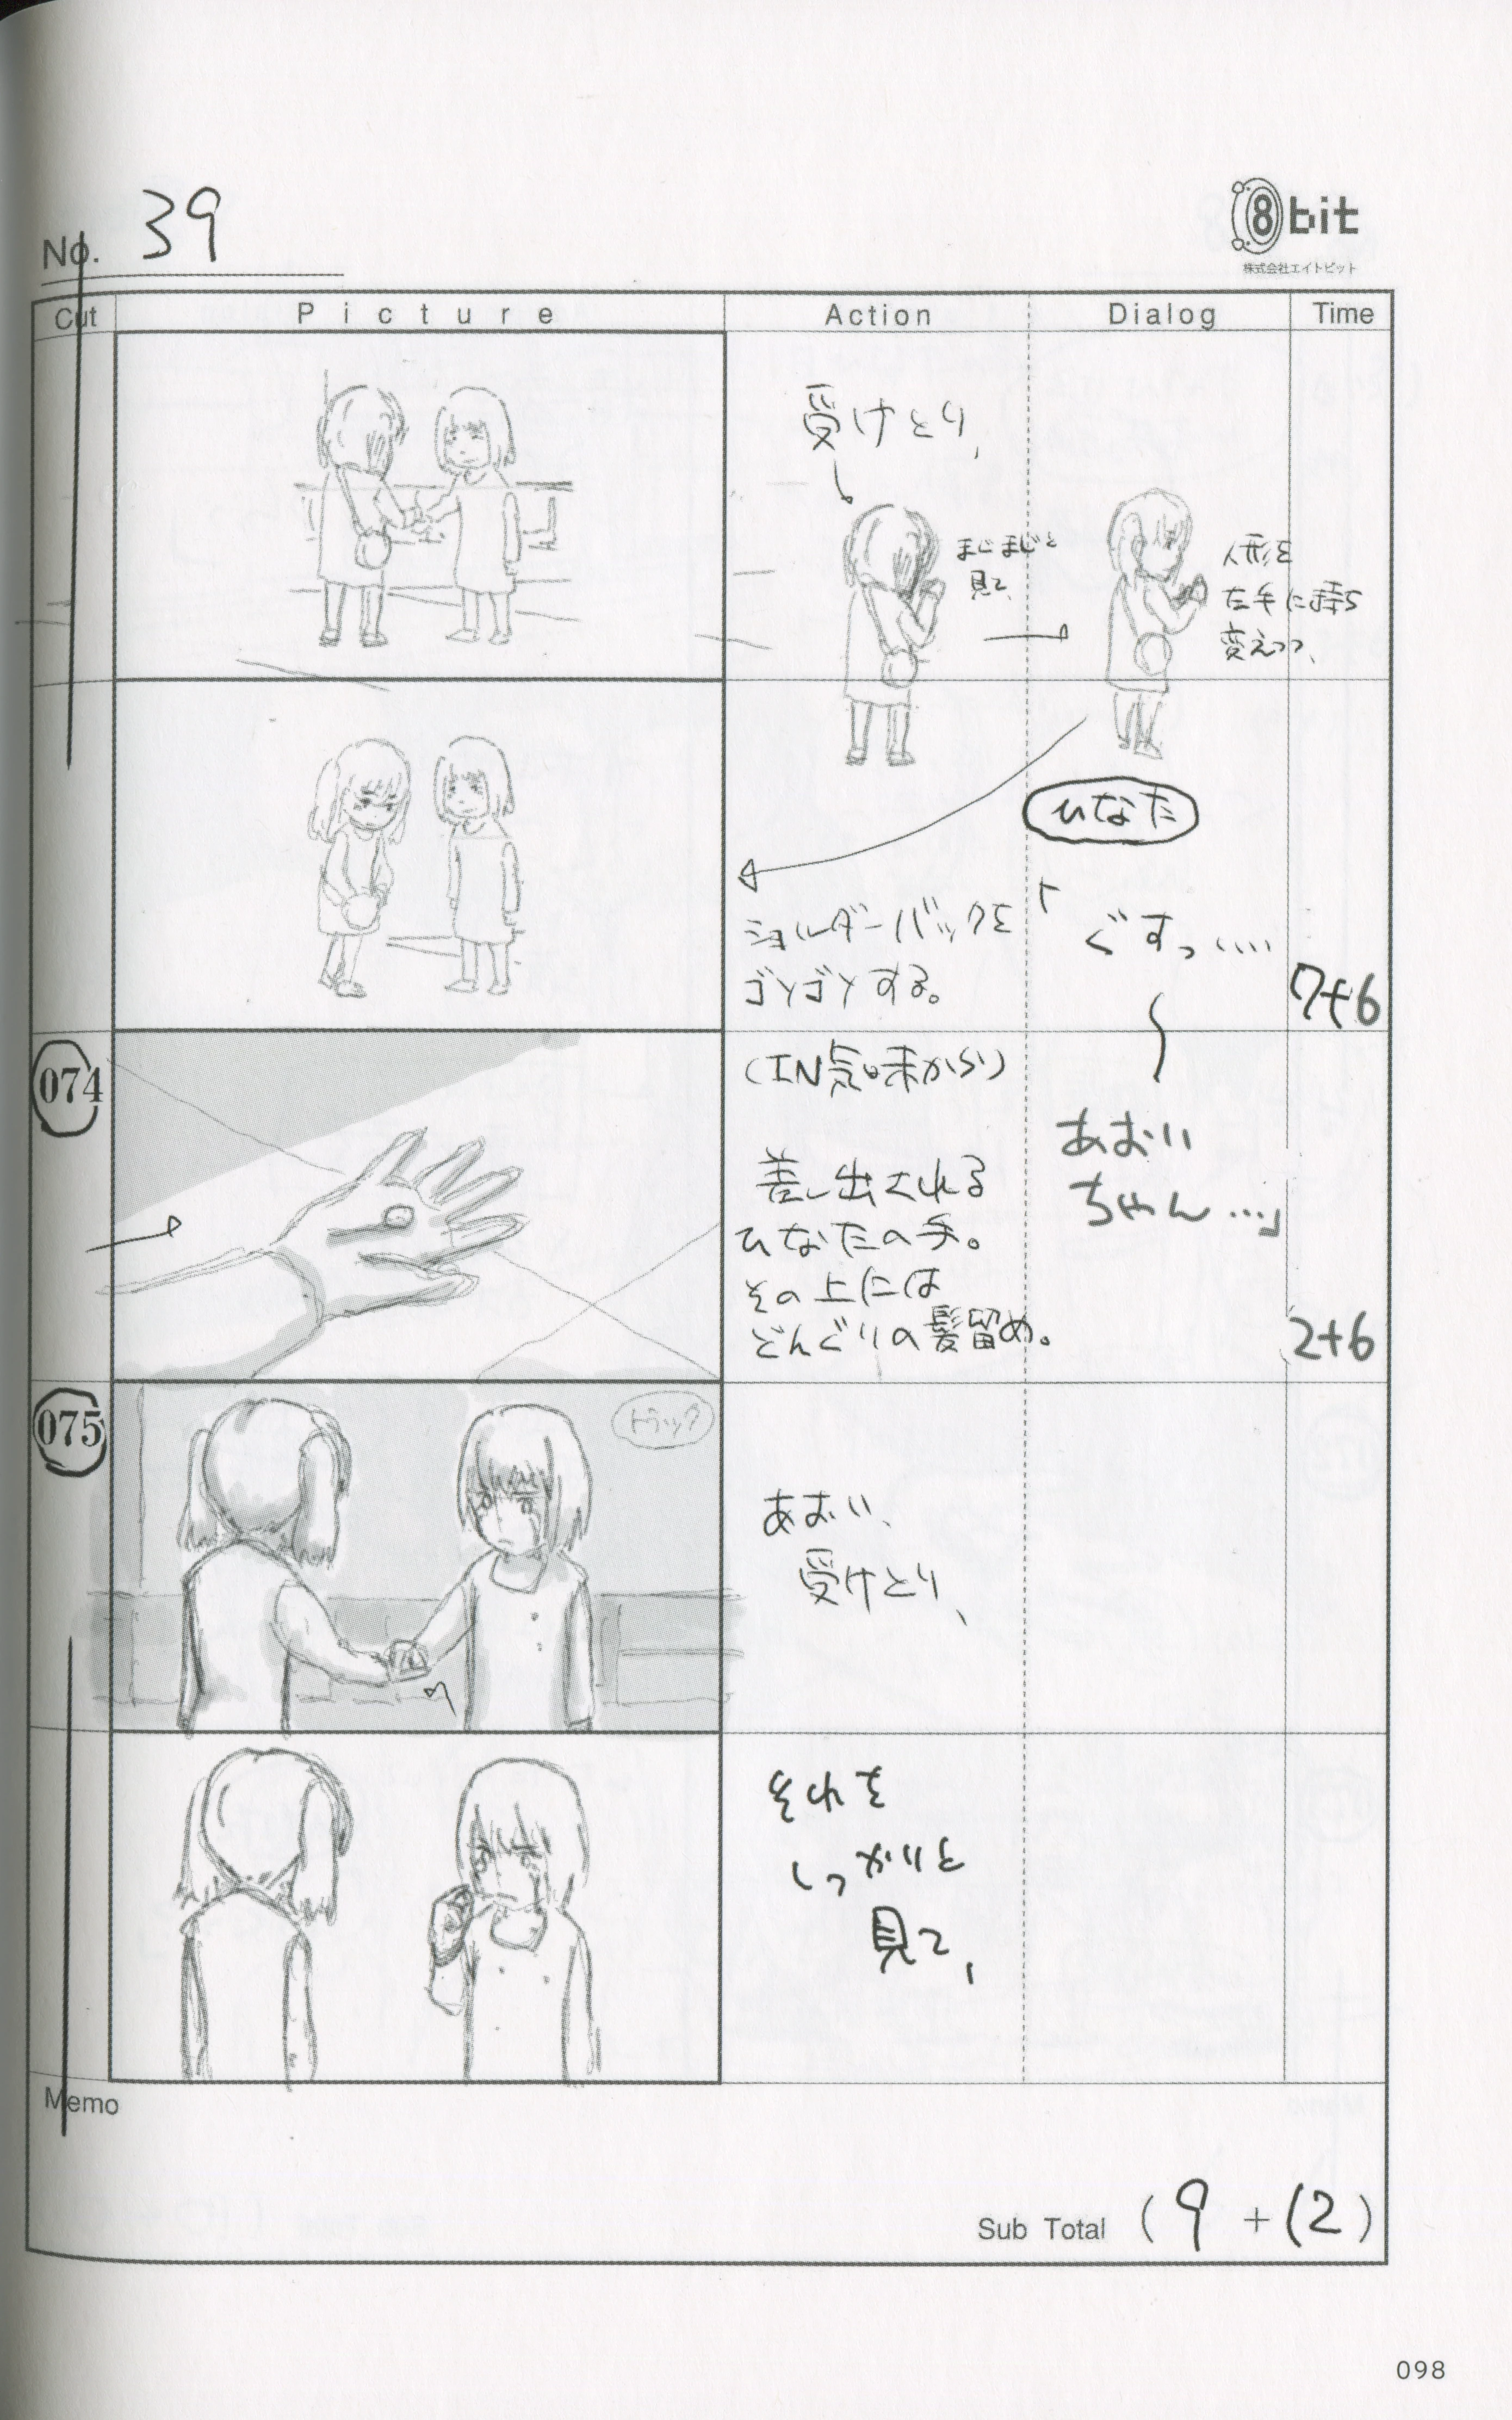 No. 39
8bit
株式会社エイトビット
Cut
Picture
Action
Dialog
Time
受けとり、
まじまじと
見て、
人形を
左手に持ち
変えつつ、
ひなた
ショルダーバックを
ゴソゴソする。
「ぐすっ‥‥
7+6
074
(IN気味から)
差し出される
ひなたの手。
その上には
どんぐりの髪留め。
あおい
ちゃん…」
2+6
075
トラック
あおい、
受けとり、
それを
しっかりと
見て、
Memo
Sub Total ( 9 + 12 )
098